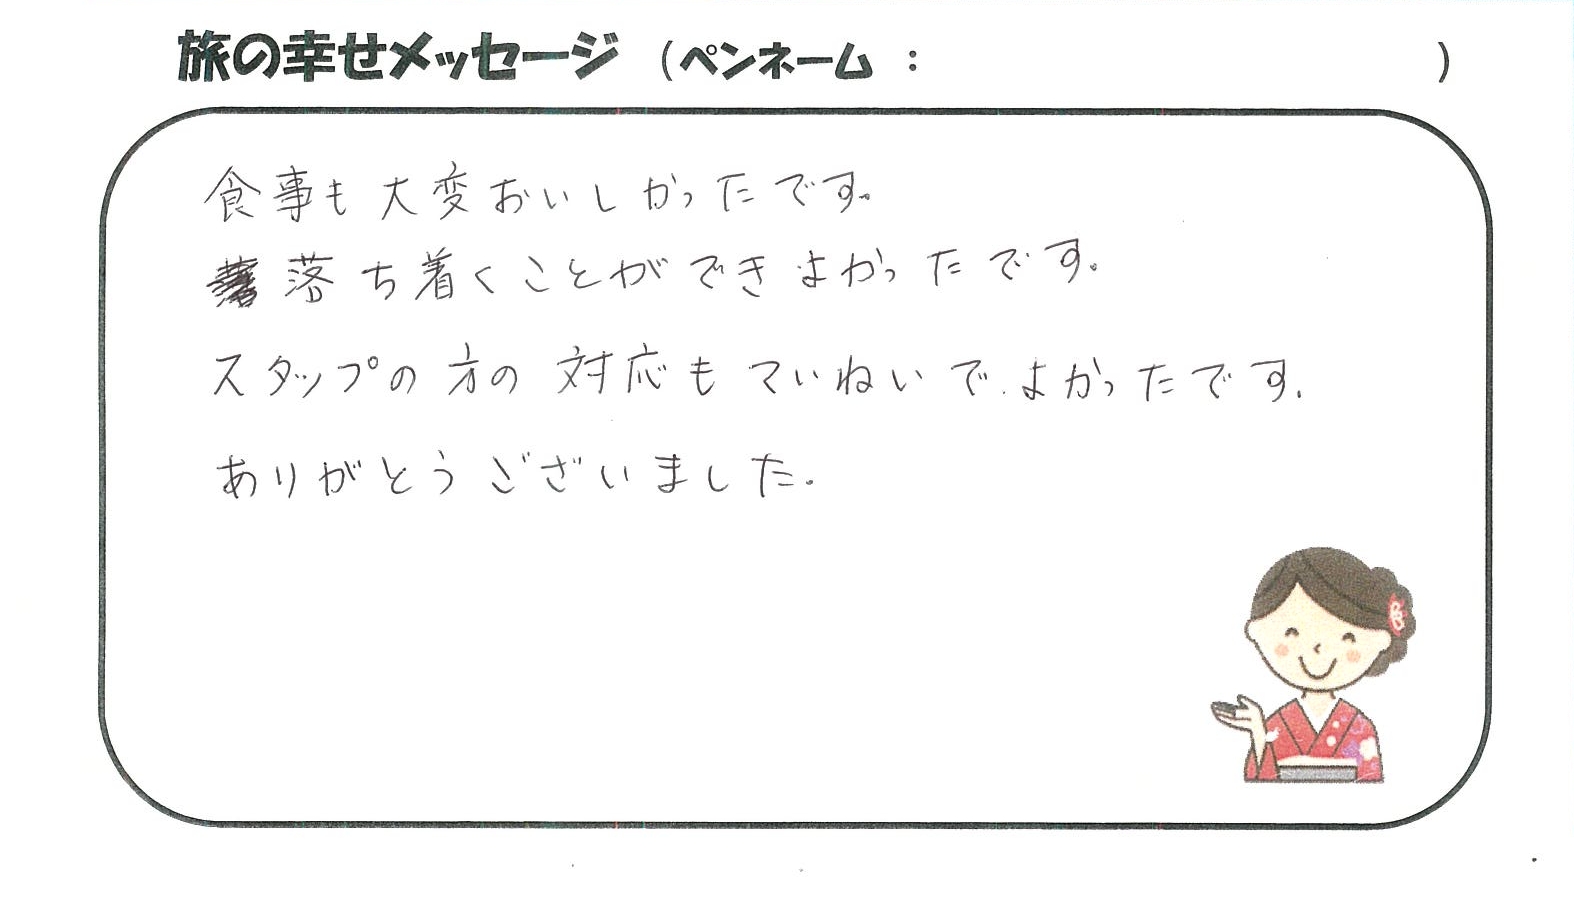 旅の幸せメッセージ (ペンネーム : )
食事も大変おいしかったです。
落ち着くことができよかったです。
スタップの方の対応もていねいで.よかったです.
ありがとうございました.